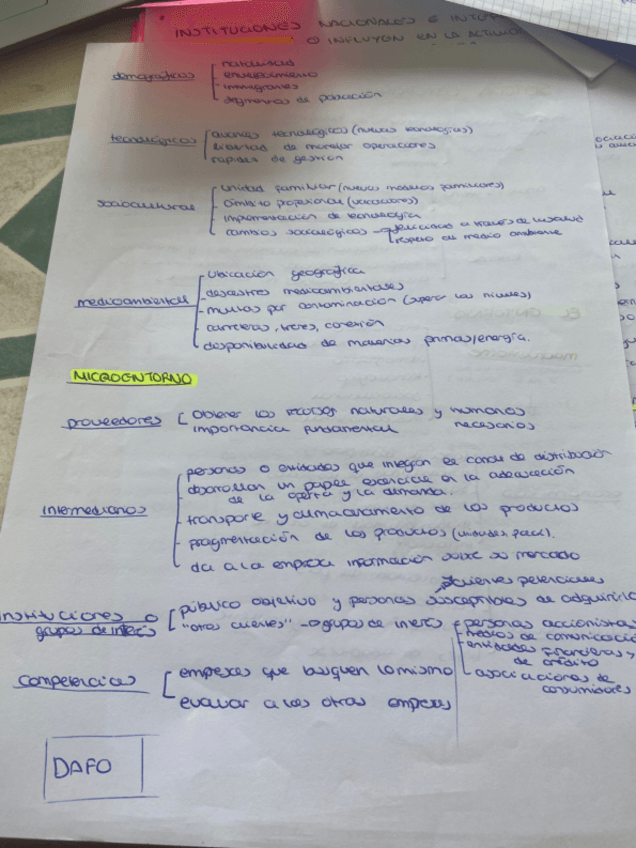 INSTITUCIONES NACIONALES E INTER
O INFLUYEN EN LA ACTIVID
demográficos
natalidad
envejecimiento
inmigrantes
segmentos de población
tecnológicos
avances tecnológicos (nuevas tecnologías)
libertad de manejar operaciones
rapidez de gestión
socioculturales
unidad familiar (nuevos modelos familiares)
ámbito profesional (vacaciones)
implementación de tecnología
cambios sociológicos ejercicios a través de
respeto al medio ambiente
medioambiental
ubicación geográfica
desastres medioambientales
multas por contaminación (superar los niveles)
carreteras, trenes, conexión
disponibilidad de materias primas/energía.
MICROENTORNO
proveedores
obtener los recursos naturales y humanos
importancia fundamental necesarios
Intermediarios
personas o entidades que integran el canal de distribución
desarrollan un papel esencial en la adecuación
de la oferta y la demanda.
transporte y almacenamiento de los productos
fragmentación de los productos (unidades, pack).
da a la empresa información sobre su mercado
clientes potenciales
Instituciones o
grupos de interés
público objetivo y personas susceptibles de adquirirlo
"otros clientes" → grupos de interés
personas accionistas
medios de comunicació
entidades financieras y
de crédito
asociaciones de
consumidores
competencias
empresas que busquen lo mismo
evaluar a las otras empresas
DAFO